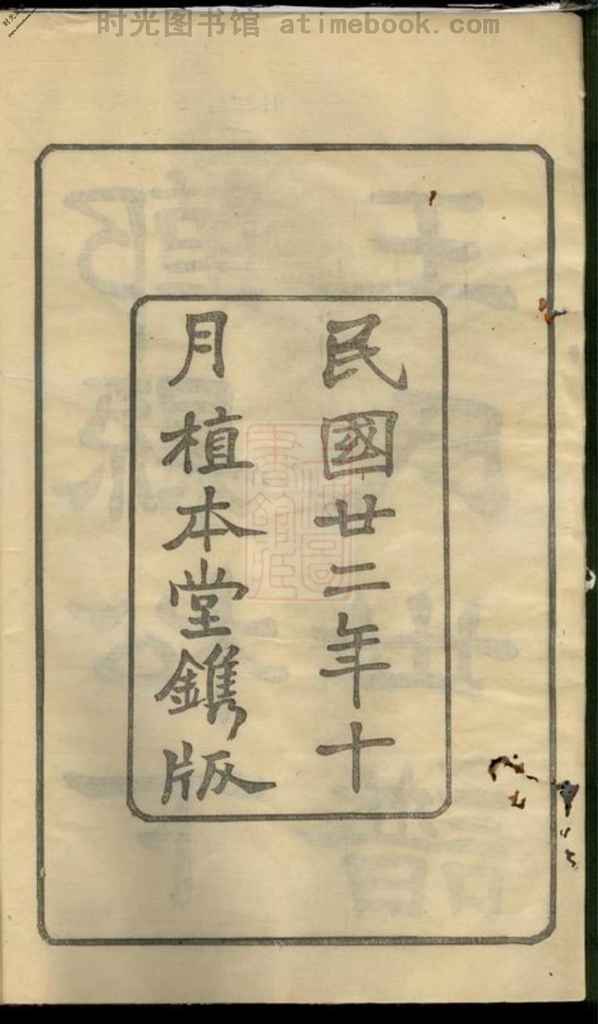 时光图书馆 atimebook.com
民國廿二年十
月植本堂鐫版